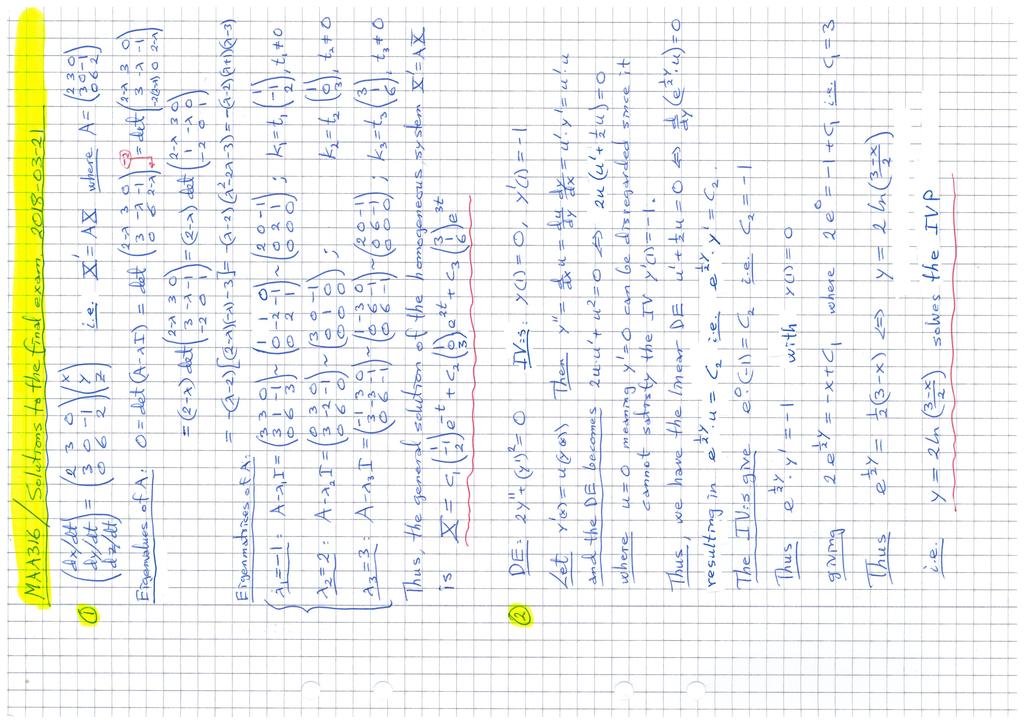 MAA316 / Solutions to the final exam 2018-03-21
① (dx/dt dy/dt dz/dt) = (2 3 0 3 0 -1 0 6 2)(x y z) i.e. X' = AX where A = (2 3 0 3 0 -1 0 6 2)
Eigenvalues of A: 0 = det(A-λI) = det(2-λ 3 0 3 -λ -1 0 6 2-λ) = det(2-λ 3 0 3 -λ -1 -2(2-λ) 0 2-λ)
= (2-λ) det(2-λ 3 0 3 -λ -1 -2 0 1) = (2-λ) det(2-λ 3 0 1 -λ 0 -2 0 1)
= -(λ-2)[(2-λ)(-λ)-3] = -(λ-2)(λ²-2λ-3) = -(λ-2)(λ+1)(λ-3)
Eigenmatrices of A:
λ₁=-1: A-λ₁I = (3 3 0 3 1 -1 0 6 3) ~ (1 1 0 0 -2 -1 0 2 1) ~ (2 0 -1 0 2 1 0 0 0); K₁=t₁(1 -1 2), t₁≠0
λ₂=2: A-λ₂I = (0 3 0 3 -2 -1 0 6 0) ~ (3 0 -1 0 1 0 0 0 0); K₂=t₂(1 0 3), t₂≠0
λ₃=3: A-λ₃I = (-1 3 0 3 -3 -1 0 6 -1) ~ (1 -3 0 0 6 -1 0 6 -1) ~ (2 0 -1 0 6 -1 0 0 0); K₃=t₃(3 1 6), t₃≠0
Thus, the general solution of the homogeneous system X'=AX
is X = c₁(1 -1 2)e^-t + c₂(1 0 3)e^2t + c₃(3 1 6)e^3t
② DE: 2y''+(y')²=0 IV:s: y(1)=0, y'(1)=-1
Let y'(x)=u(y(x)) Then y''=d/dx u = du/dy dy/dx = u'·y' = u'·u
and the DE becomes 2u·u'+u²=0 ⇔ 2u(u'+½u)=0
where u=0 meaning y'=0 can be disregarded since it
cannot satisfy the IV y'(1)=-1.
Thus, we have the linear DE u'+½u=0 ⇔ d/dy(e^½y·u)=0
resulting in e^½y·u = C₂ i.e. e^½y·y' = C₂.
The IV:s give e⁰·(-1)=C₂ i.e. C₂=-1
Thus e^½y·y'=-1 with y(1)=0
giving 2e^½y = -x+C₁ where 2e⁰=-1+C₁ i.e. C₁=3
Thus e^½y = ½(3-x) ⇔ y = 2 ln((3-x)/2)
i.e. y = 2 ln((3-x)/2) solves the IVP